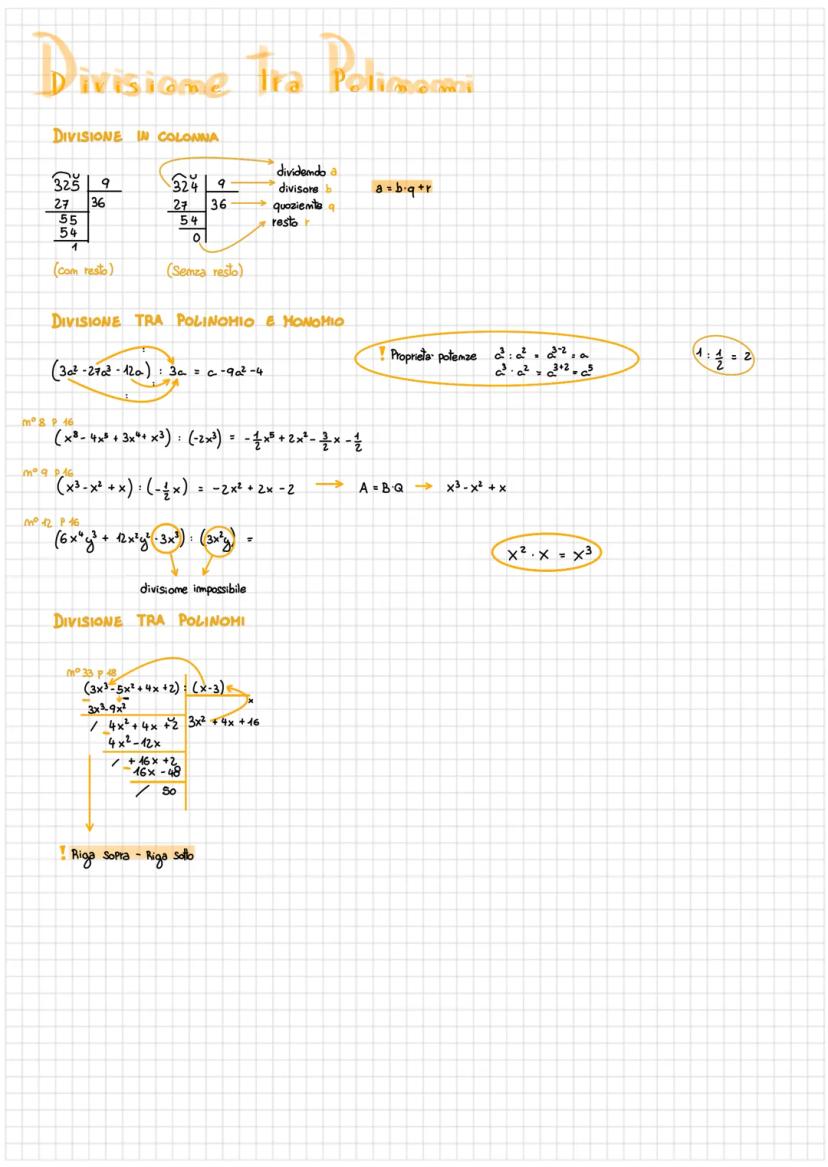 Divisione tra Polinomi
DIVISIONE IN COLONNA
325 | 9
27 | 36
55
54
1
(con resto)
324 | 9
27 | 36
54
0
(Senza resto)
dividendo a
divisore b
quoziente q
resto r
a = b·q+r
DIVISIONE TRA POLINOMIO E MONOMIO
(3a² - 27a³ - 12a) : 3a = a - 9a² - 4
! Proprietà potenze a³ : a² = a³⁻² = a
a³ · a² = a³⁺² = a⁵
1 : 1/2 = 2
n° 8 P 16
(x⁸ - 4x⁵ + 3x⁴ + x³) : (-2x³) = -1/2 x⁵ + 2x² - 3/2 x - 1/2
n° 9 P 16
(x³ - x² + x) : (-1/2 x) = -2x² + 2x - 2 → A = B·Q → x³ - x² + x
n° 12 P 16
(6x⁴y³ + 12x²y² -3x³) : (3x²y) =
divisione impossibile
x² · x = x³
DIVISIONE TRA POLINOMI
n° 33 P 18
(3x³ - 5x² + 4x + 2) : (x-3)
x
3x³ - 9x²
/ 4x² + 4x + 2 | 3x² + 4x + 16
4x² - 12x
/ + 16x + 2
16x - 48
/ 50
! Riga sopra - Riga sotto